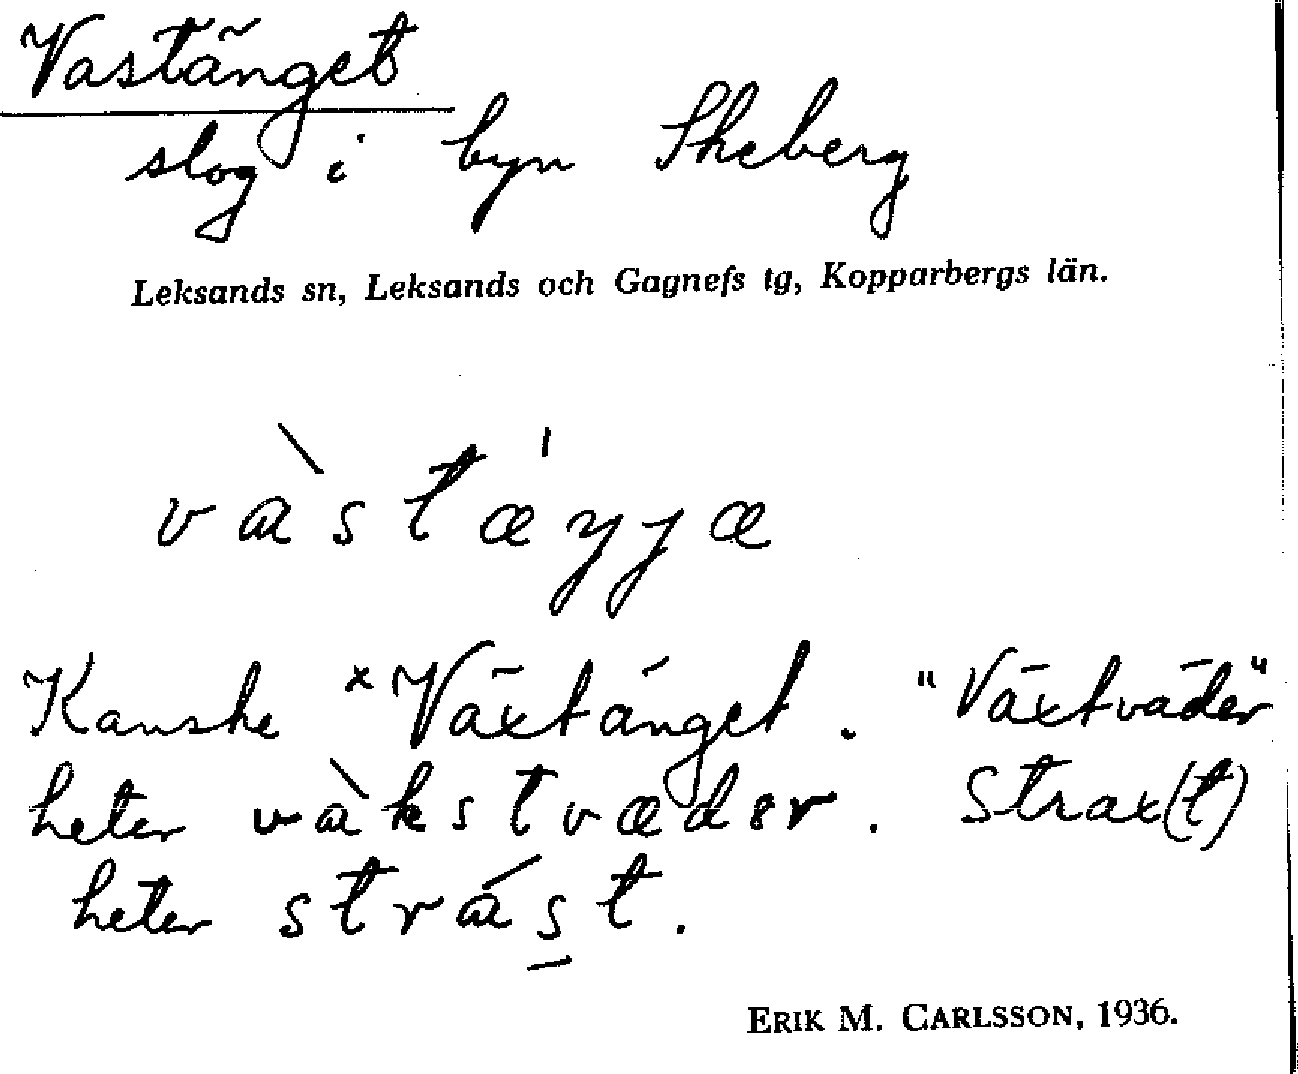 Vastänget
slog i byn Skeberg
Leksands sn, Leksands och Gagnefs tg, Kopparbergs län.
vàstæ̍ŋŋæ
Kanske ˣVäxtänget. "Växtväder"
heter vàkstvædər. Strax(t)
heter strás̱t.
ERIK M. CARLSSON, 1936.